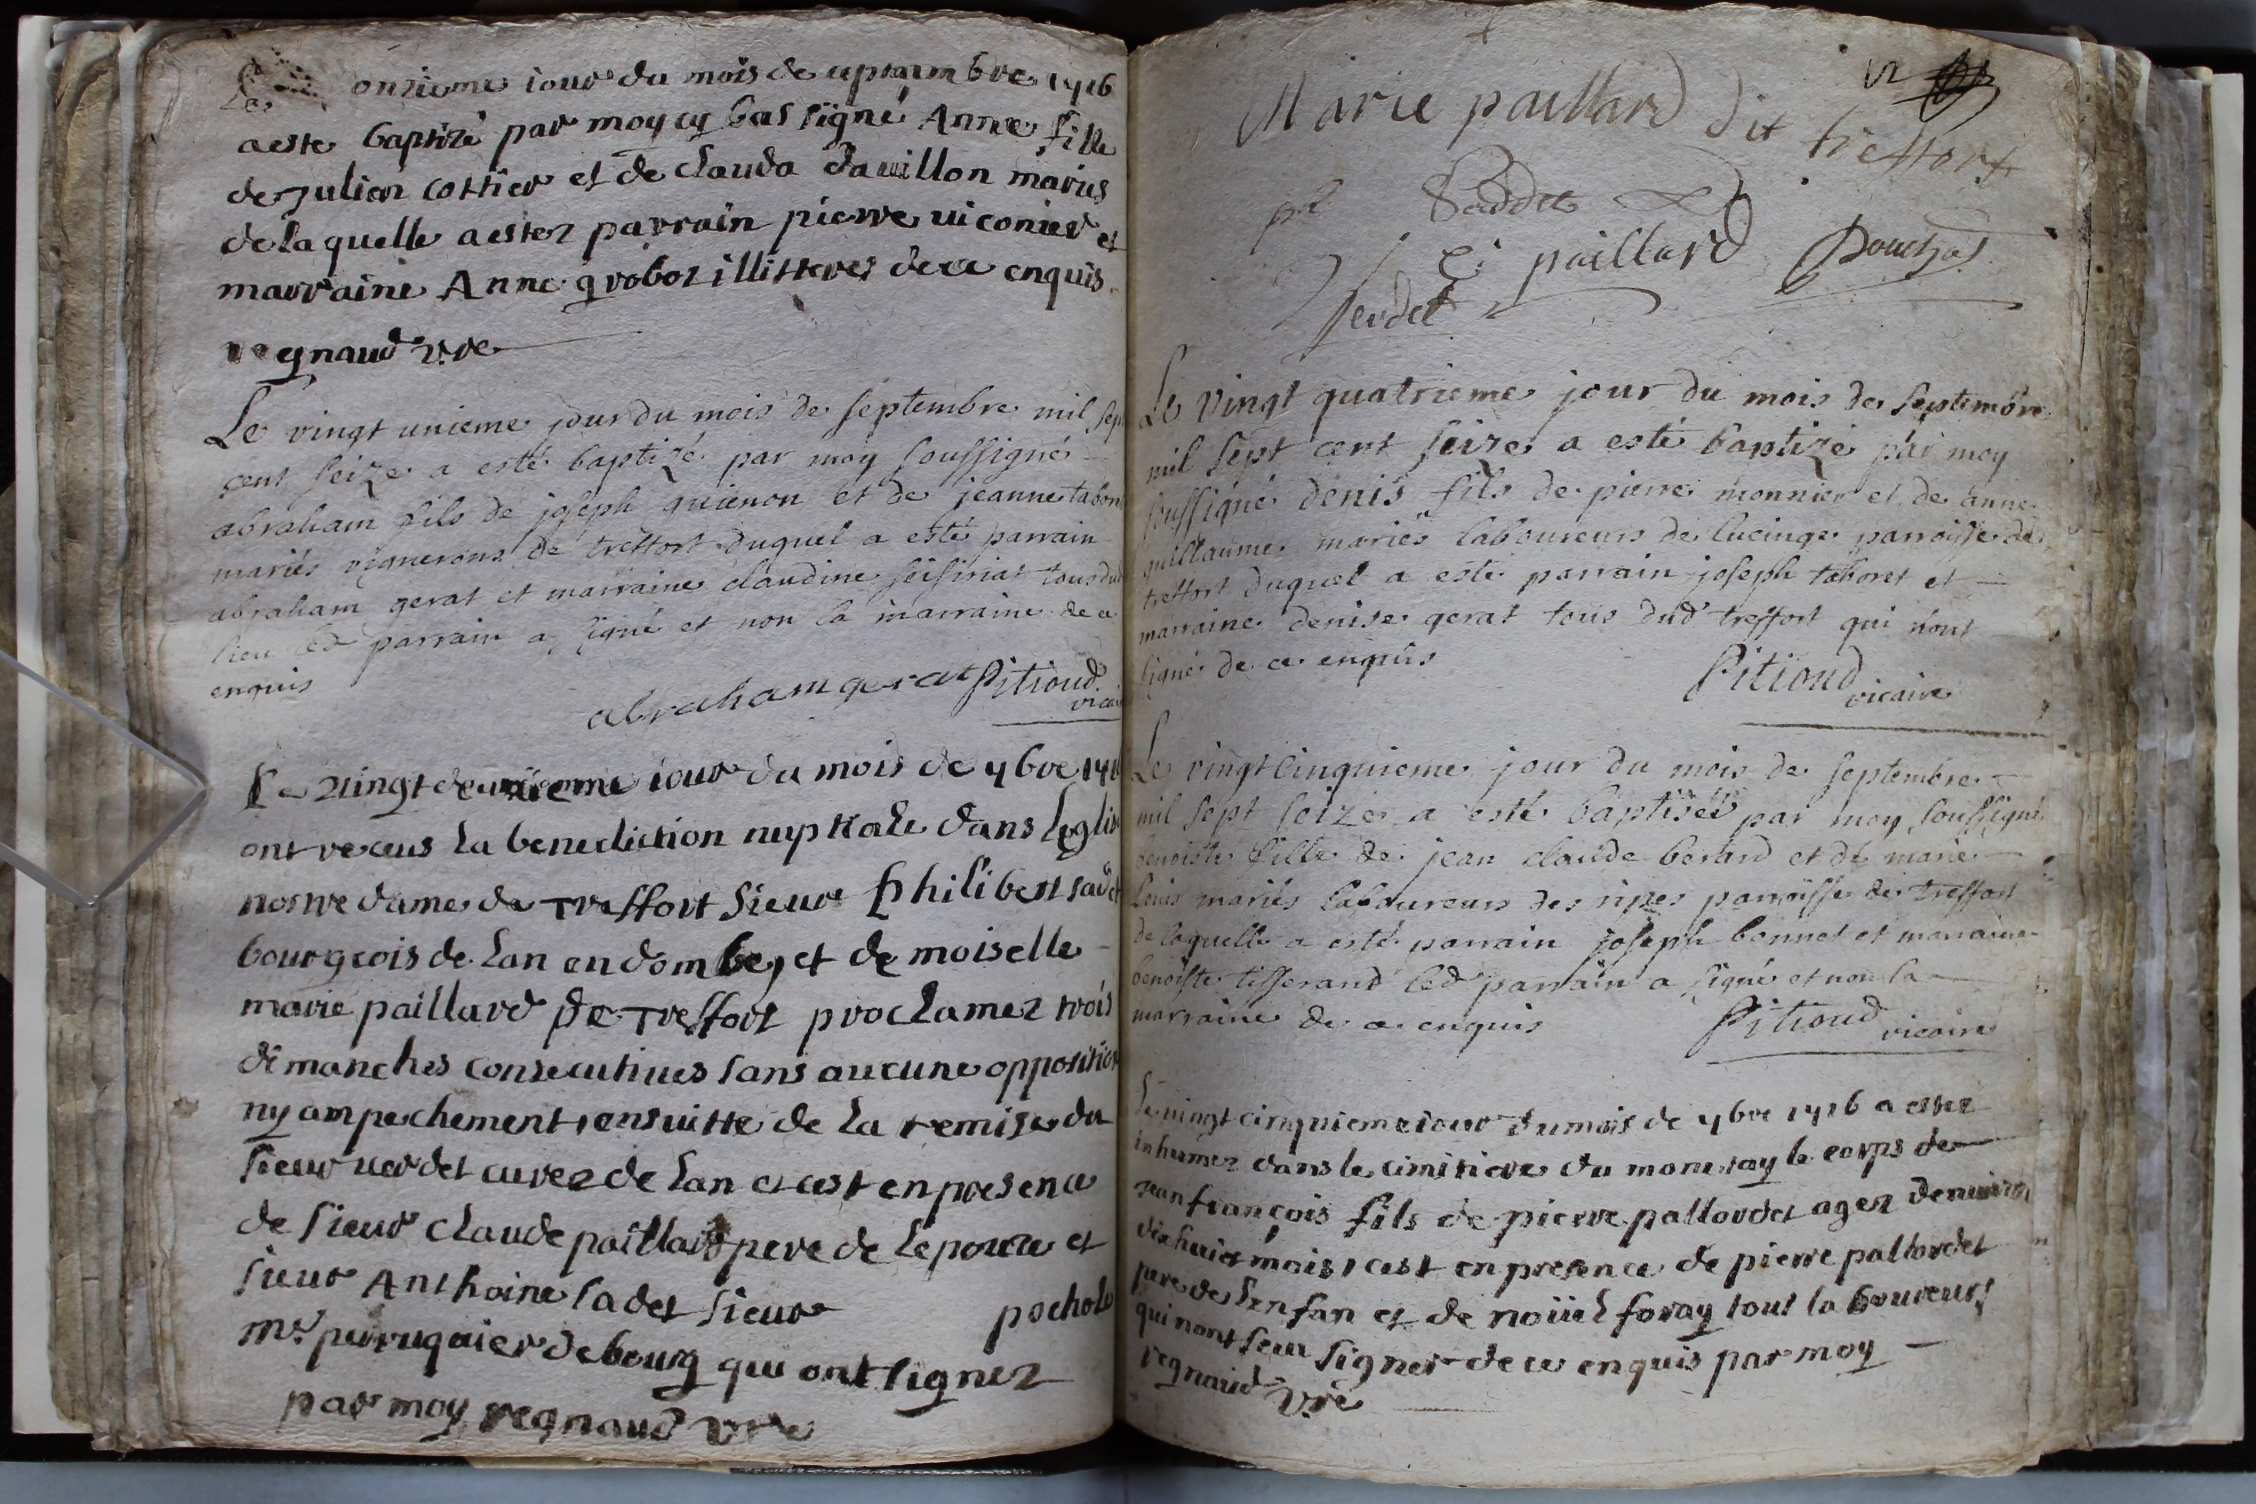 Le onzieme iour du mois de septambre 1716
a este baptizé par moy cy bas signé Anne fille
de Julien cottier et de clauda dauillon maries
de laquelle a ester parrain pierre uiconier et
marraine Anne groboz illitteres de ce enquis
regnaud vre
Le vingt unieme jour du mois de septembre mil sept
cent seize a esté baptizé par moy soussigné
abraham fils de joseph guienon et de jeanne tabor
mariés vignerons de treffort duquel a esté parrain
abraham gerat et marraine claudine seisiriat tous dud
lieu led parrain a signé et non la marraine de ce
enquis
abraham gerat Pitioud
vicai
Le uingt deuxieme iour du mois de 7bre 171
ont receus la benediction nuptiale dans leglise
nostre dame de Treffort sieur philibert sadet
bourgeois de lan en dombe, et demoiselle
marie paillard de Treffort proclamez trois
dimanches consecutiues sans aucune opposition
ny ampechement, ensuitte de la remise du
sieur uerdet curez de lan et cest en presence
de sieur claude paillard pere de lepouze et
sieur Anthoine sadet sieur pochole
mr. perruquier de bourg qui ont signez
par moy regnaud vre
Marie paillard dit treffort
Saddet
C paillard Pouchol
Verdet
Le vingt quatrieme jour du mois de septembre
mil sept cent seize a esté baptizé par moy
soussigné denis fils de pierre monnier et de anne
guillaume mariés laboureurs de lucinge parroisse de
treffort duquel a esté parrain joseph taboret et
marraine denise gerat tous dud treffort qui n'ont
signé de ce enquis
Pitioud
vicaire
Le vingt cinquieme jour du mois de septembre
mil sept seize a esté baptisée par moy soussigné
benoiste fille de jean claude berard et de marie
Louis mariés laboureurs des ripes parroisse de treffort
de laquelle a esté parrain joseph bonnet et marraine
benoiste tisserand led parrain a signé et non la
marraine de ce enquis Pitioud vicaire
Le uingt cinquieme iour du mois de 7bre 1716 a ester
inhumez dans le cimitiere du monetay le corps de
Jean françois fils de pierre pallordet agez denuiron
dix huict mois, cest en presence de pierre pallordet
pere de lenfan et de noüiel foray tout laboureurs
qui nont seu signer de ce enquis par moy
regnaud vre